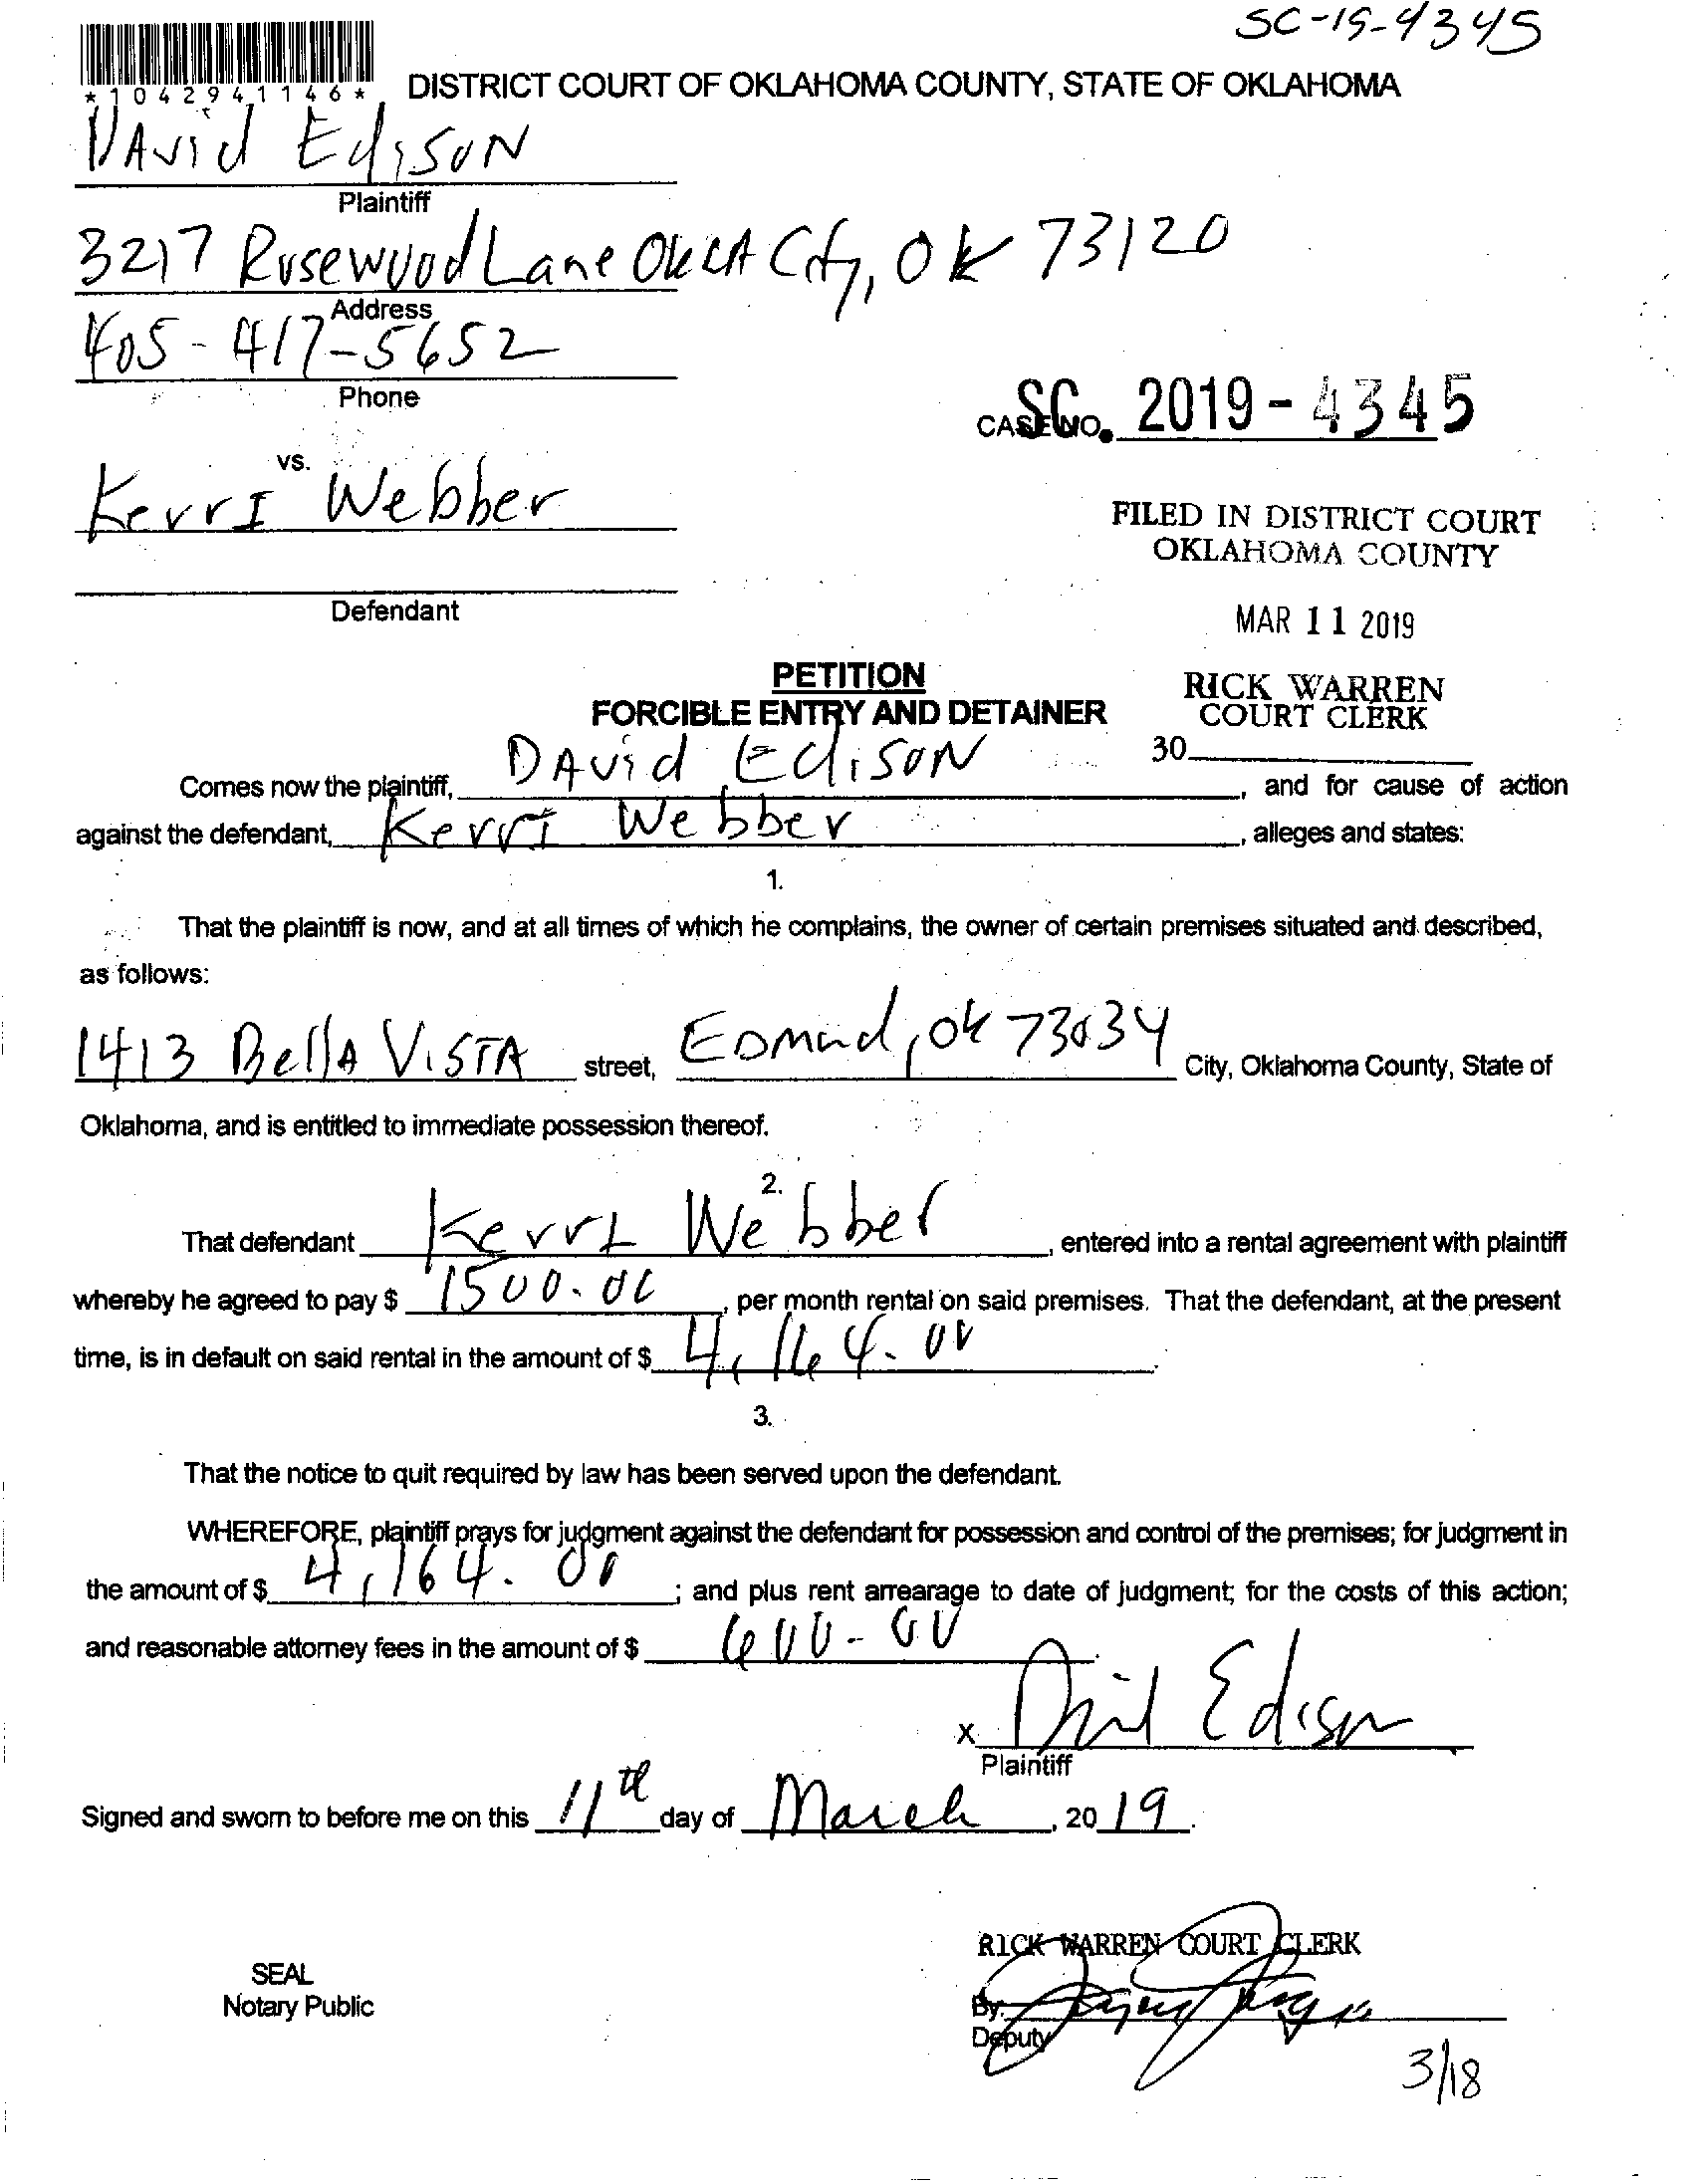 SC-19-4345
*1042941146*
DISTRICT COURT OF OKLAHOMA COUNTY, STATE OF OKLAHOMA
DAvid EdisoN
Plaintiff
3217 Rosewood Lane City, OK 73120
Address
405-417-5652
Phone
CASE NO. SC 2019-4345
vs.
KerrI Webber
FILED IN DISTRICT COURT
OKLAHOMA COUNTY
Defendant
MAR 11 2019
PETITION
RICK WARREN
FORCIBLE ENTRY AND DETAINER
COURT CLERK
30
Comes now the plaintiff, DAvid EdisoN, and for cause of action
against the defendant, KerrI Webber, alleges and states:
1.
That the plaintiff is now, and at all times of which he complains, the owner of certain premises situated and described,
as follows:
1413 BellA ViSTA street, EDmond, OK 73034 City, Oklahoma County, State of
Oklahoma, and is entitled to immediate possession thereof.
2.
That defendant KerrI Webber, entered into a rental agreement with plaintiff
whereby he agreed to pay $ 1500.00, per month rental on said premises. That the defendant, at the present
time, is in default on said rental in the amount of $ 4,164.00.
3.
That the notice to quit required by law has been served upon the defendant.
WHEREFORE, plaintiff prays for judgment against the defendant for possession and control of the premises; for judgment in
the amount of $ 4,164.00; and plus rent arrearage to date of judgment; for the costs of this action;
and reasonable attorney fees in the amount of $ 600-00.
X David Edison
Plaintiff
Signed and sworn to before me on this 11th day of March, 2019.
RICK WARREN COURT CLERK
SEAL
Notary Public
By:
Deputy
3/18